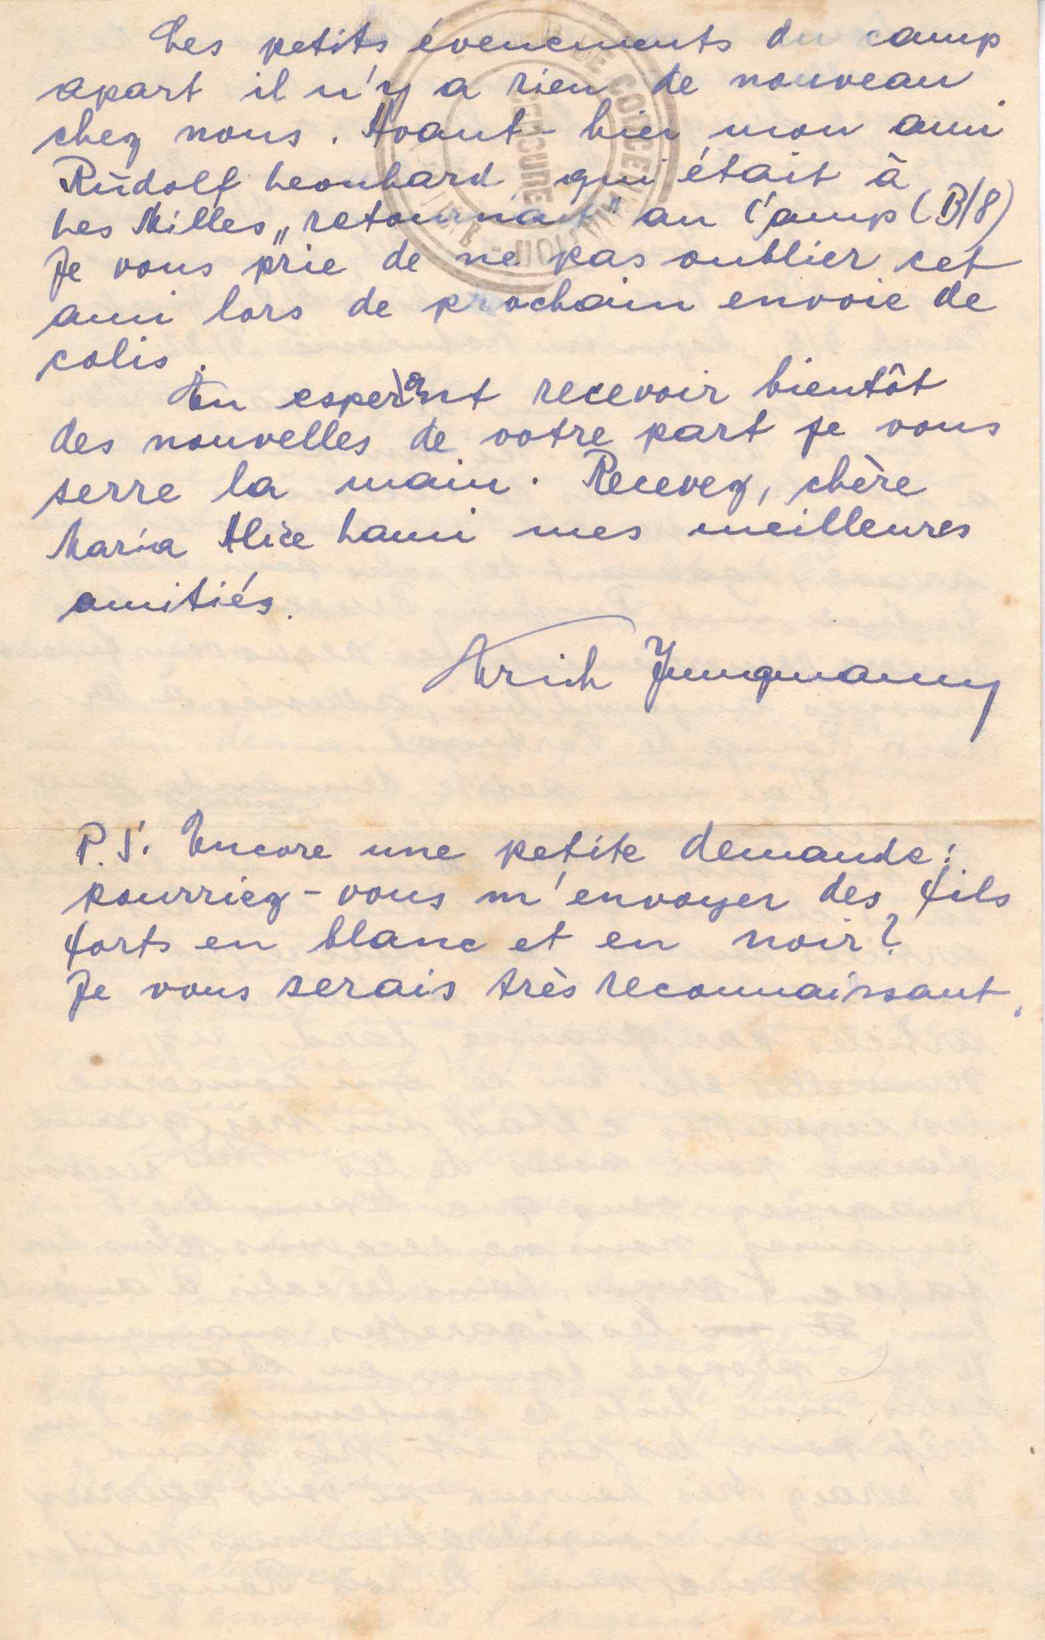 Les petits évenements du camp
apart il n'y a rien de nouveau
chez nous. Avant-hier mon ami
Rudolf Leonhard qui était à
Les Milles „retournait" au Camp (B/8)
Je vous prie de ne pas oublier cet
ami lors de prochain envoie de
colis.
En esperant recevoir bientôt
des nouvelles de votre part je vous
serre la main. Recevez, chère
Maria Alice Lami mes meilleures
amitiés.
Erich Jungmann
P.S. Encore une petite demande:
pourriez-vous m'envoyer des fils
forts en blanc et en noir?
Je vous serais très reconnaissant.
DE CONCEN
CENSURE